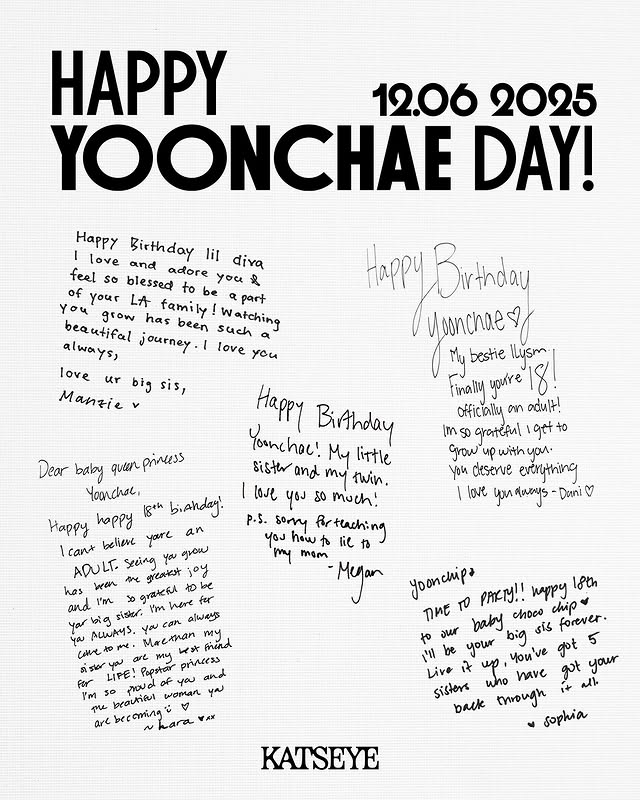 HAPPY
12.06 2025
YOONCHAE DAY!
Happy Birthday lil diva
I love and adore you &
feel so blessed to be a part
of your LA family! Watching
you grow has been such a
beautiful journey. I love you
always,
love ur big sis,
Manzie
Happy Birthday
Yoonchae♡
My bestie llysm.
Finally you're 18!
officially an adult!
Im so grateful I get to
grow up with you.
You deserve everything
I love you always - Dani ♡
Happy Birthday
Yoonchae! My little
sister and my twin.
I love you so much!
p.s. sorry for teaching
you how to lie to
my mom
- Megan
Dear baby queen princess
Yoonchae,
Happy happy 18th birthday!
I can't believe you're an
ADULT. Seeing you grow
has been the greatest joy
and I'm so grateful to be
your big sister. I'm here for
you ALWAYS. you can always
come to me. More than my
sister you are my best friend
for LIFE! Popstar princess
I'm so proud of you and
the beautiful woman you
are becoming :) ♡
~ Lara ♥xx
yoonchip
TIME TO PARTY!! happy 18th
to our baby choco chip ♥
I'll be your big sis forever.
Live it up, You've got 5
sisters who have got your
back through it all.
♥ sophia
KATSEYE